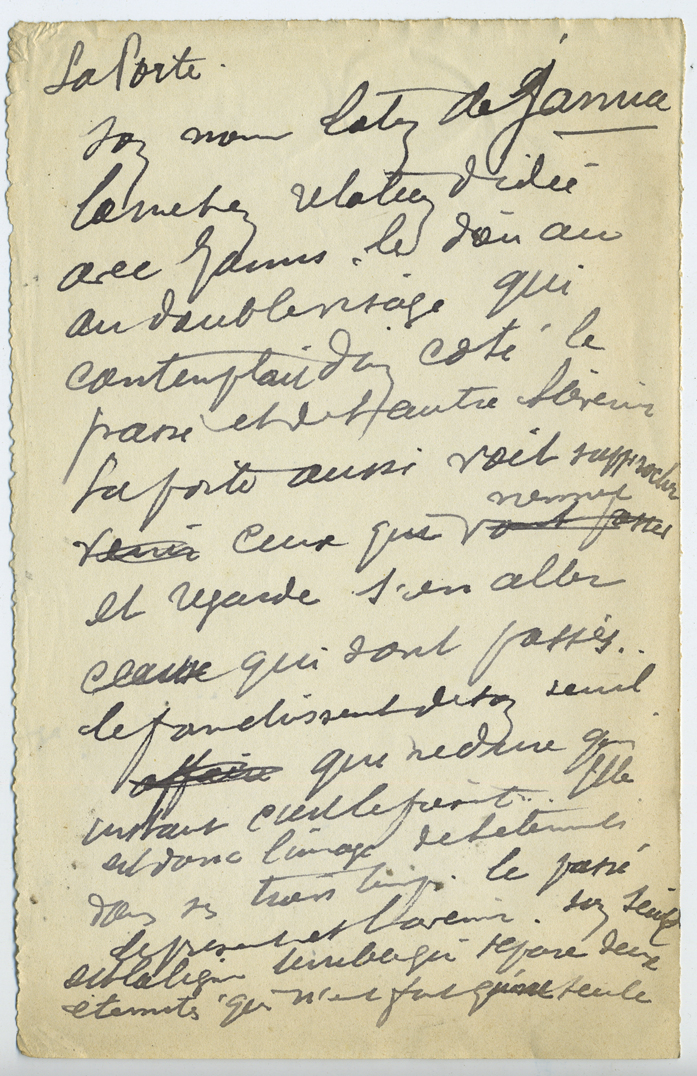 La Porte.
son nom latin de Janua
la met en relation d'idée
avec Janus, le dieu au
au double visage qui
contemplait d'un coté le
passé et de l'autre l'avenir
La porte aussi voit rapprocher
venir ceux qui vont passer
et regarde s'en aller
ceux qui sont passés..
le franchissement de son seuil
affaire qui ne dure qu'un
instant c'est le présent.. Elle
est donc l'image de l'éternité
dans ses trois temps. le passé
le présent et l'avenir. son seuil
est la ligne qui sépare deux
éternités qui n'est qu'une seule